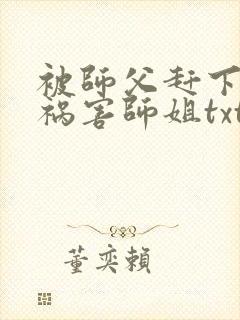 被師父赶下
祸害師姐txt
董奕賴